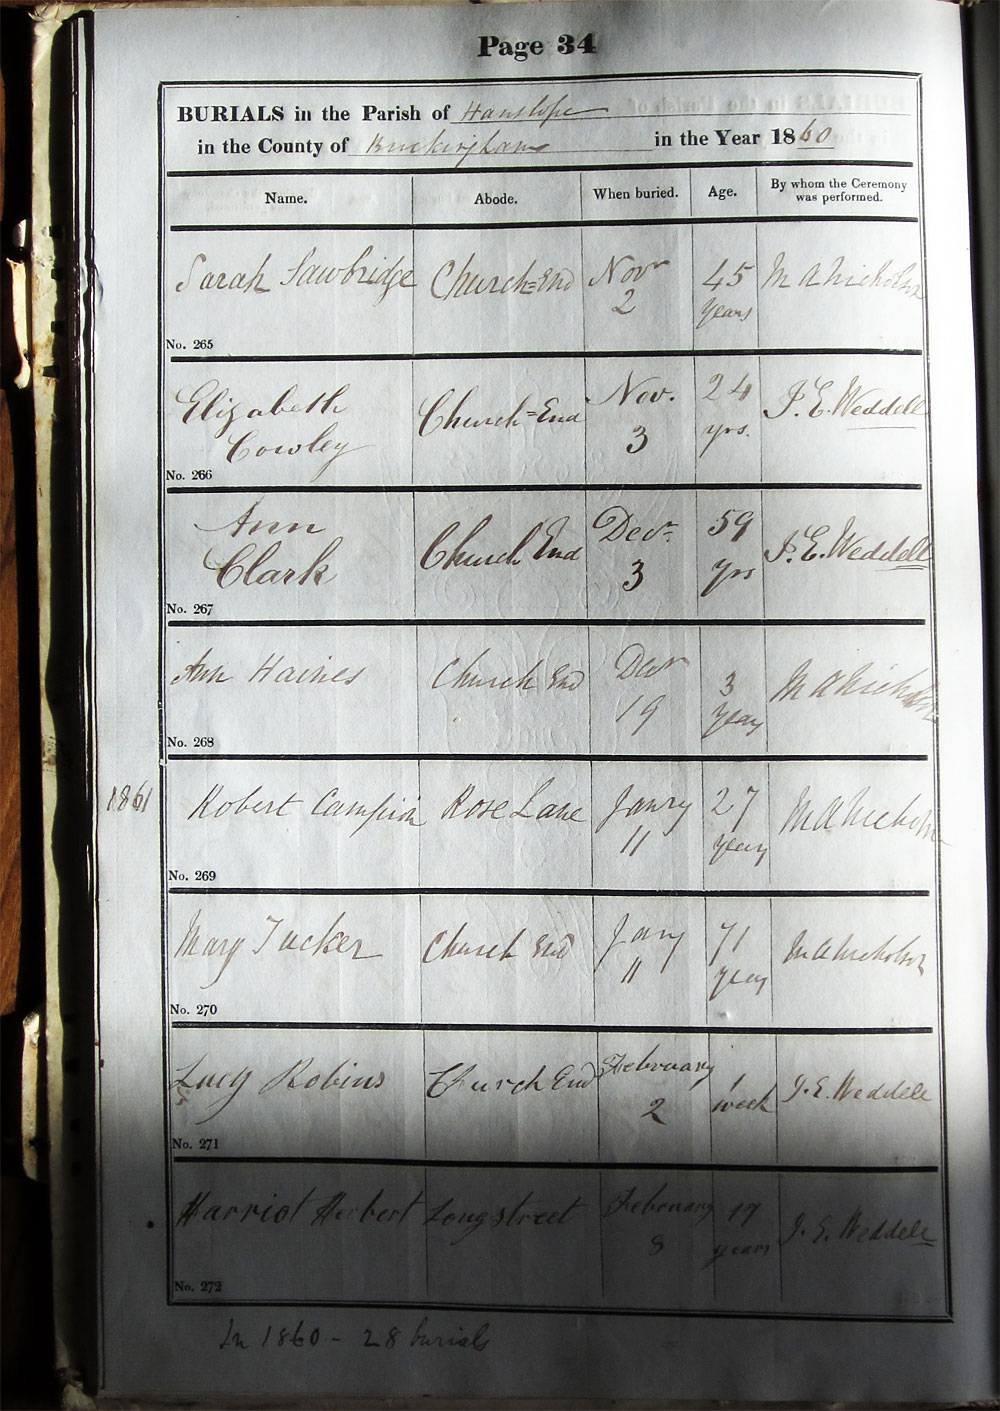 Page 34
BURIALS in the Parish of Hanslope
in the County of Buckingham in the Year 1860
Name. Abode. When buried. Age. By whom the Ceremony was performed.
Sarah Sawbridge Church=End Novr 2 45 years M A Nicholson
No. 265
Elizabeth Cowley Church=End Nov. 3 24 yrs. J. E. Weddell
No. 266
Ann Clark Church End Decr. 3 59 yrs J. E. Weddell
No. 267
Ann Haines Church End Decr 19 3 years M A Nicholson
No. 268
1861 Robert Campion Rose Lane Janry 11 27 years M A Nicholson
No. 269
Mary Tucker Church End Jany 11 71 years M A Nicholson
No. 270
Lucy Robins Church End February 2 1 week J. E. Weddell
No. 271
Harriot Herbert Longstreet February 8 years J. E. Weddell
No. 272
In 1860 - 28 burials